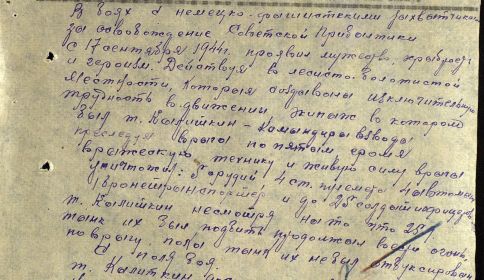 В боях с немецко-фашистскими захватчиками
за освобождение Советской Прибалтики
с 17 сентября 1944г. проявил мужество, храброс
и героизм. Действуя в лесисто-болотистой
местности, которая создавала исключительную
трудность в движении экипаж в котором
был т. Калишкин - командира взвода
преследуя врага по пятам громя
вражескую технику и живую силу врага
уничтожил: 5 орудий 4 ст. пулемета 4 автомаш
1 бронетранспортер и до 25 солдат и офицеров
т. Калишкин несмотря на то что 25.9
танк их был подбит продолжал вести огонь
по врагу, пока танк их не был отбуксирован
с поля боя.
т. Калишкин